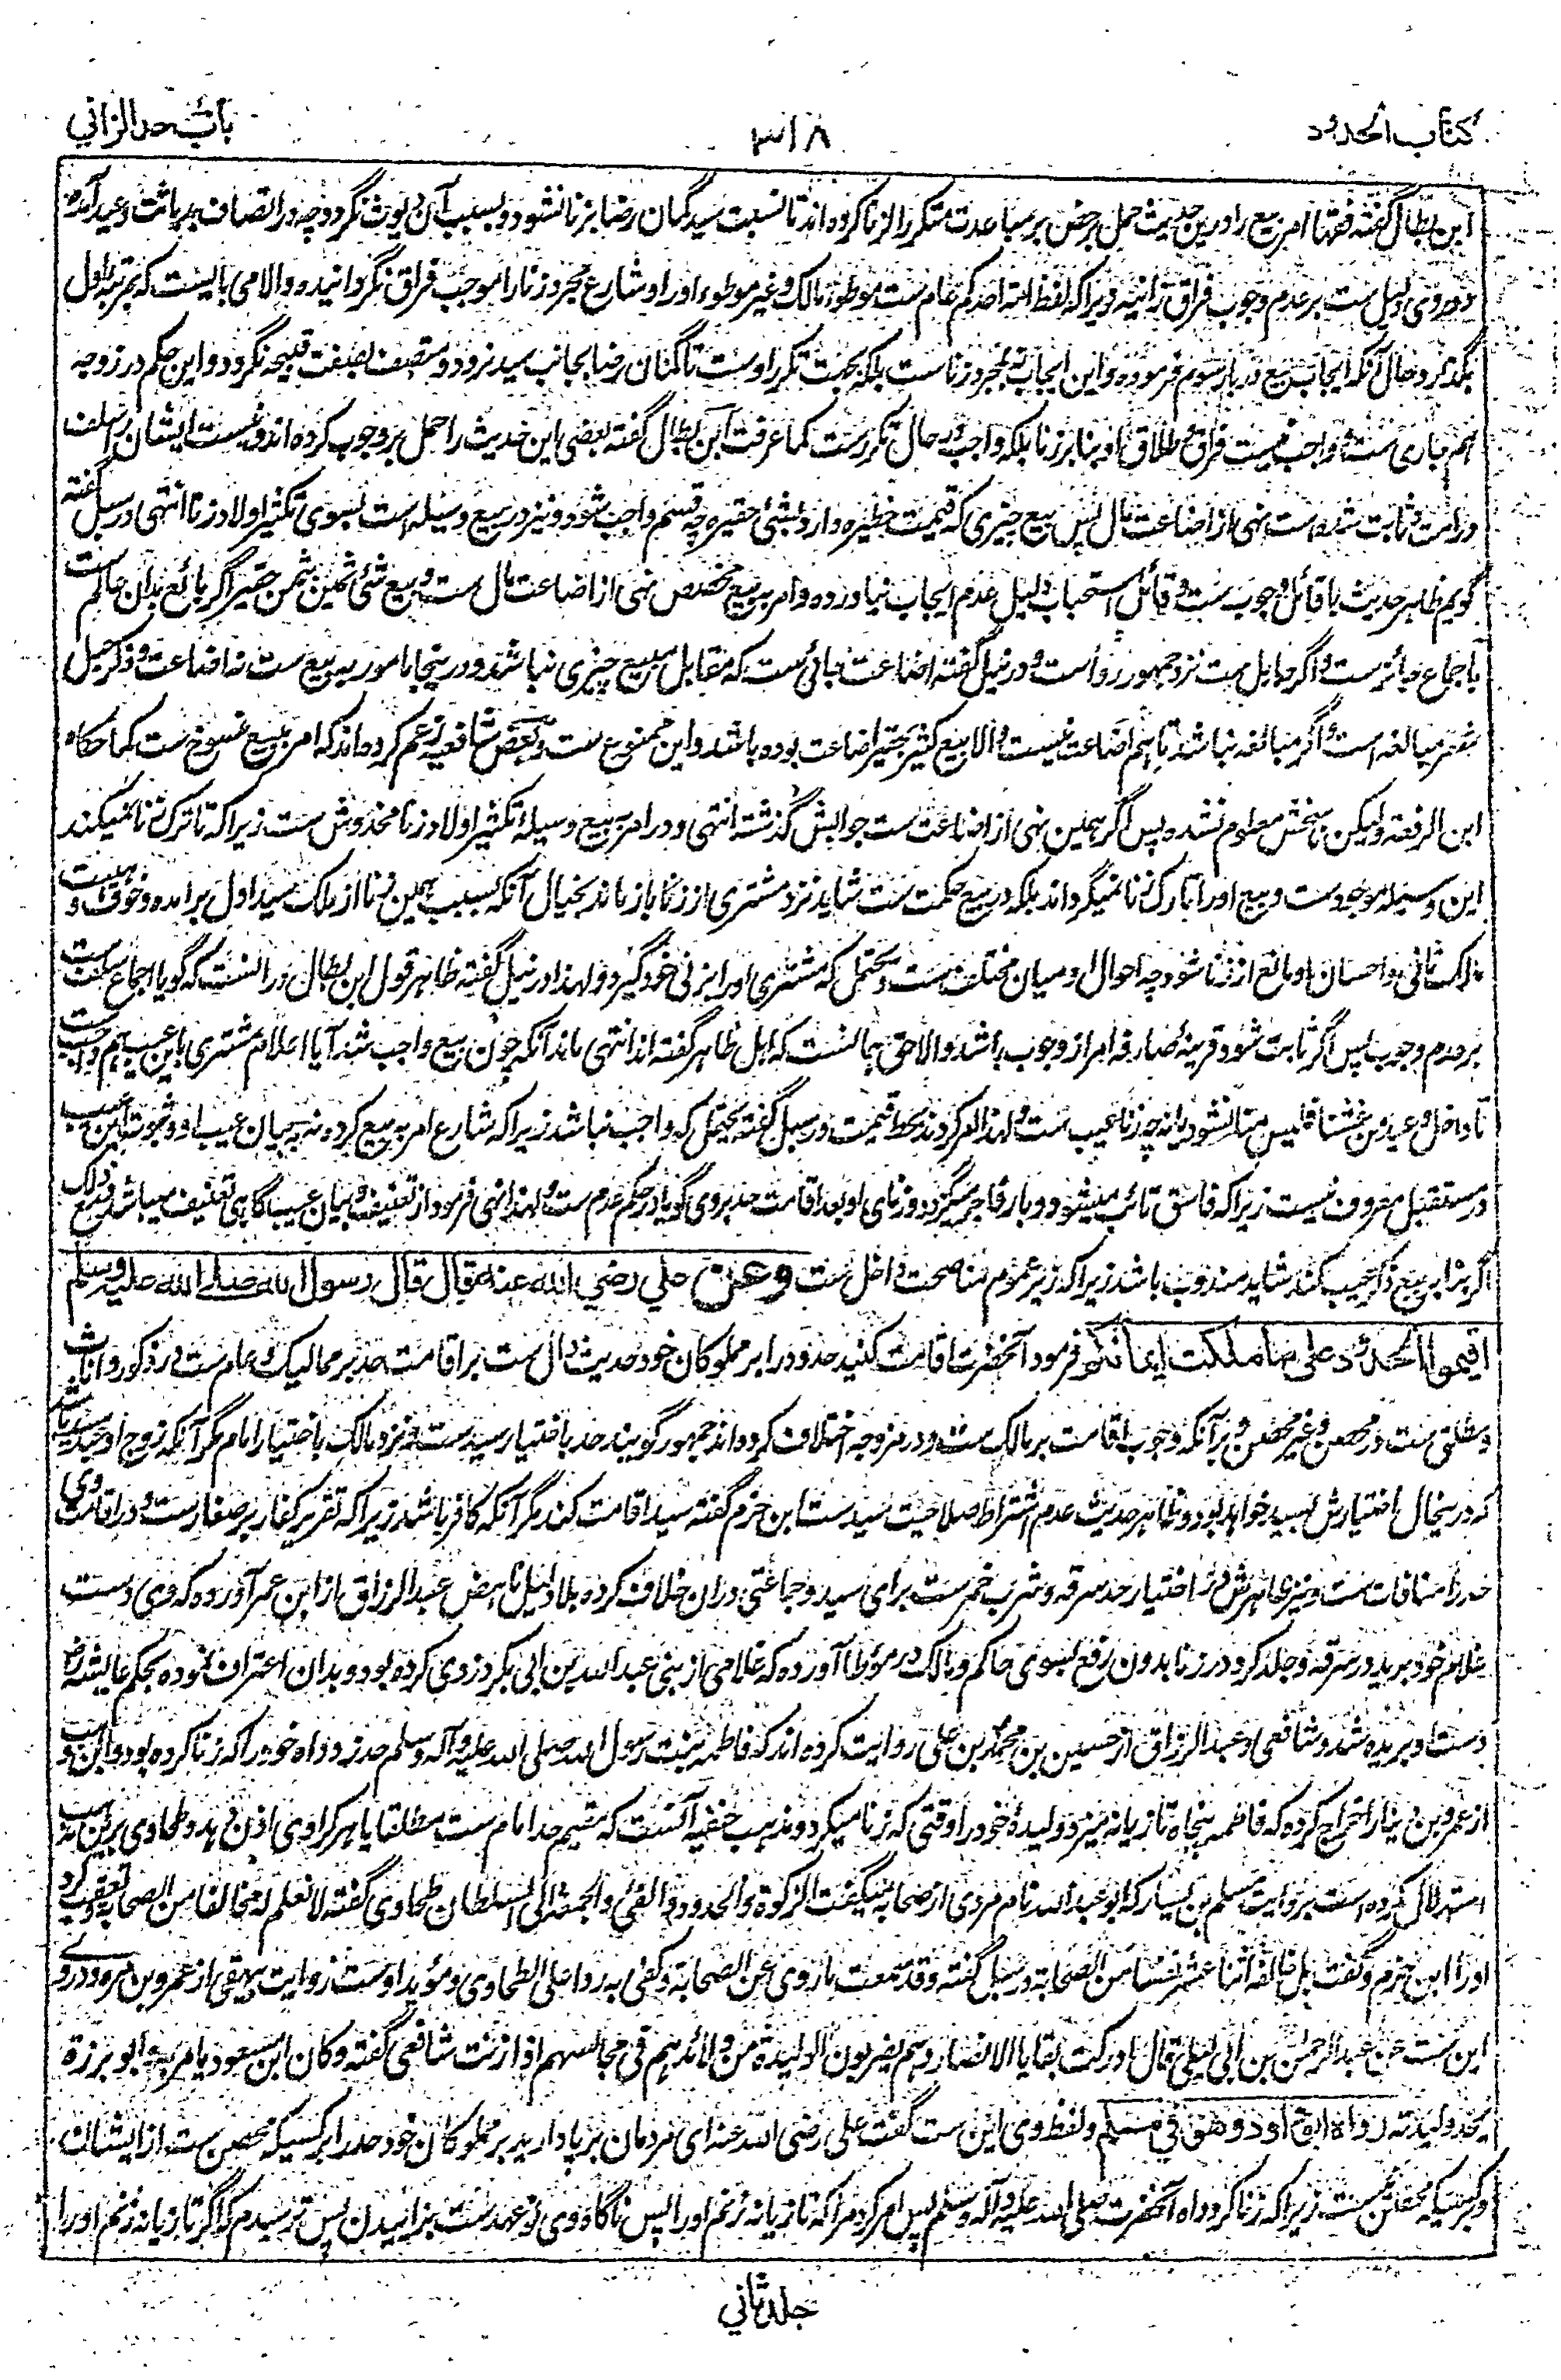 کتاب الحدود
۳۱۸
باب حد الزانی
ابن بطال گفته فقها امر بیع را درین حدیث حمل بر حض بر مباعدت متکرر الزنا کرده اند تا نسبت سید گمان رضا بزنا نشود و بسبب آن دیوث نگردد چه در اتصاف بدیاثت وعید آمده
و در وی دلیل ست بر عدم وجوب فراق زانیه زیرا که لفظ امة احدکم عام ست موطوءه مالک و غیر موطوءه او را و شارع مجرد زنا را موجب فراق نگردانیده والا می بایست که بمرتبه اول
بگذارد حال آنکه ایجاب بیع در بار سوم فرموده و این ایجاب نه بمجرد زناست بلکه بجهت تکرر اوست تا گمان رضا بجانب سید نرود و متصف بصفت قبیحه نگردد و این حکم در زوجه
هم جاری ست و واجب نیست فراق و طلاق او بنا بر زنا بلکه واجب در حال تکررست کما عرفت ابن بطال گفته بعضی این حدیث را حمل بر وجوب کرده اند و نیست ایشان را سلف
در امت و ثابت شده ست نهی از اضاعت مال پس بیع چیزی که قیمت خطیره دارد بشئی حقیره چه قسم واجب شود و نیز در بیع وسیله است بسوی تکثیر اولاد زنا انتهی در سبل گفته
گویم ظاهر حدیث با قائل وجوب ست و قائل استحباب دلیل عدم ایجاب نیاورده و امر به بیع مخصص نهی از اضاعت مال ست و بیع شئی ثمین بثمن حقیر اگر بائع بدان عالم ست
باجماع جائزست و اگر جاهل ست نزد جمهور رواست و در نیل گفته اضاعت جائی ست که مقابل مبیع چیزی نباشد و در ینجا مامور به بیع ست نه اضاعت و ذکر حبل
شعر مبالغه است و اگر مبالغه نباشد تاهم اضاعت نیست والا بیع کثیر بحقیر اضاعت بوده باشد و این ممنوع ست و بعض شافعیه زعم کرده اند که امر به بیع منسوخ ست کما حکاه
ابن الرفعة و لیکن ناسخش معلوم نشده پس اگر همین نهی از اضاعت ست جوابش گذشته انتهی و در امر به بیع وسیله تکثیر اولاد زنا مخدوش ست زیرا که تا ترک زنا نمیکند
این وسیله موجودست و بیع او را تارک زنا نمیگرداند بلکه در بیع حکمت ست شاید نزد مشتری از زنا باز ماند بخیال آنکه بسبب همین زنا از ملک سید اول برآمده و خوف و هیبت
مالک ثانی و احسان او مانع از زنا شود چه احوال او میان مختلف ست و یحتمل که مشتری او را بزنی خود گیرد و لهذا در نیل گفته ظاهر قول ابن بطال در آنست که گویا اجماع سلف ست
بر عدم وجوب پس اگر ثابت شود قرینه صارفه امر از وجوب باشد والا حق همانست که اهل ظاهر گفته اند انتهی ماند آنکه چون بیع واجب شد آیا اعلام مشتری باین عیب هم واجب ست
تا داخل وعید من غشنا فلیس منا نشود یا نه چه زنا عیب ست و لهذا امر کردند بحط قیمت در سبل گفته یحتمل که واجب نباشد زیرا که شارع امر به بیع کرده نه به بیان عیب او و ثبوت این عیب
در مستقبل معروف نیست زیرا که فاسق تائب میشود و بار فاجر میگردد و زنای او بعد اقامت حد بروی گویا در حکم عدم ست و لهذا نهی فرمود از تعنیف و بیان عیب گاهی تعنیف میباشد فمع ذلک
اگر بنا بر بیع ذکر عیب کند شاید مندوب باشد زیرا که زیر عموم مناصحت داخل ست وعن علی رضی الله عنه قال قال رسول الله صلی الله علیه وسلم
اقیموا الحدود علی ما ملکت ایمانکم فرمود آنحضرت اقامت کنید حدود را بر مملوکان خود حدیث دال ست بر اقامت حد بر ممالیک و عام ست در ذکور و اناث
و مطلق ست در محصن و غیر محصن و بر آنکه وجوب اقامت بر مالک ست و در مزوجه اختلاف کرده اند جمهور گویند حد باختیار سید ست و نزد مالک باختیار امام مگر آنکه زوج او عبد سید باشد
که درینحال اختیارش بسید خواهد بود و ظاهر حدیث عدم اشتراط صلاحیت سید ست ابن حزم گفته سید اقامت کند مگر آنکه کافر باشد زیرا که تقریر کفار بر صغارست و در اقامت وی
حد را منافات ست و نیز ظاهرش در اختیار حد سرقه و شرب خمرست برای سید و جماعتی دران خلاف کرده بلا دلیل ناهض عبد الرزاق از ابن عمر آورده که وی دست
غلام خود برید در سرقه و جلد کرد در زنا بدون رفع بسوی حاکم و مالک در مؤطا آورده که غلامی از بنی عبد الله بن ابی بکر دزدی کرده بود و بدان اعتراف نموده بحکم عایشه رض
دست او بریده شد و شافعی و عبد الرزاق از حسین بن محمد بن علی روایت کرده اند که فاطمه بنت رسول الله صلی الله علیه و آله وسلم حد زد داه خود را که زنا کرده بود و ابن وهب
از عمرو بن دینار اخراج کرده که فاطمه پنجاه تازیانه میزد ولیده خود را وقتی که زنا میکرد و مذهب حنفیه آنست که مقیم حد امام ست مطلقا یا هرکه را وی اذن دهد و طحاوی برین مذهب
استدلال کرده است بروایت مسلم بن یسار که ابو عبد الله نام مردی از صحابه میگفت الزکوة والحدود والفئ والجمعة الی السلطان طحاوی گفته لا نعلم له مخالفا من الصحابة و تعقب کرد
او را ابن حزم و گفت بل خالفه اثنا عشر نفسا من الصحابة در سبل گفته وقد سمعت ما روی عن الصحابة وکفی به ردا علی الطحاوی و مؤید اوست روایت بیهقی از عمرو بن مره و در وی
این ست عن عبد الرحمن بن ابی لیلی قال ادرکت بقایا الانصار وهم یضربون الولیدة من ولائدهم فی مجالسهم اذا زنت شافعی گفته وکان ابن مسعود یامر به و ابو برزة
یحد ولیدته رواه ابو داود وهو فی مسلم و لفظ وی این ست گفت علی رضی الله عنه ای مردمان برپا دارید بر مملوکان خود حد را بر کسیکه محصن ست از ایشان
و کسیکه محصن نیست زیرا که زنا کرد داه آنحضرت صلی الله علیه و آله وسلم پس امر کرد مرا که تازیانه زنم او را پس ناگاه وی نو عهد ست بزائیدن پس ترسیدم که اگر تازیانه زنم او را
جلد ثانی